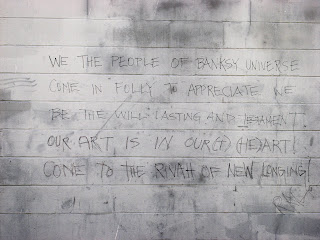 WE THE PEOPLE OF BANKSY UNIVERSE
COME IN FOLLY TO APPRECIATE WE
BE THE WILL LASTING AND TESTAMENT
OUR ART IS IN OUR (+) (HE)ART!
COME TO THE OF NEW LONGING!